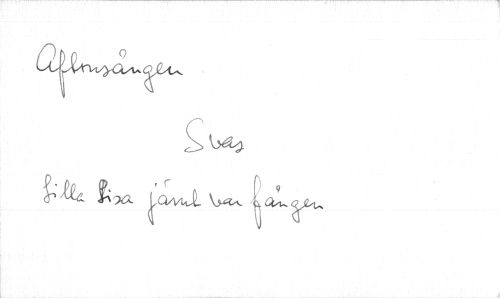 Aftonsången
Svas
Lilla Lisa jämt var fången